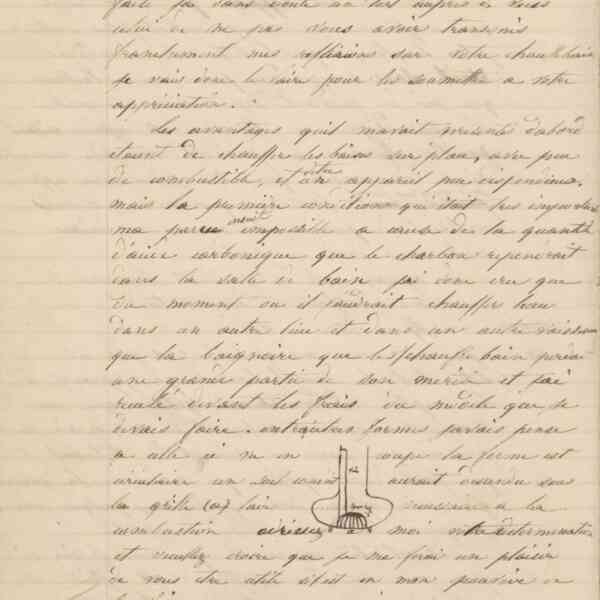 faite pas sans doute au tort auprès de vous
celui de ne pas vous avoir transmis
franchement mes reflexions sur votre chauffe bain
je vais donc le faire pour les soumettre a votre
appréciation.
Les avantages qu'il m'avait présenté d'abord
etaient de chauffer les bains sur place, avec peu
de combustible, et d'être un appareil peu dispendieux.
mais la première condition qui était très importante
ma paru ensuite impossible a cause de la quantité
d'acide carbonique que le charbon repandrait
dans la salle de bain j'ai donc cru que
du moment ou il faudrait chauffer l'eau
dans un autre lieu et dans un autre vaisseau
que la baignoire que le chauffe bain perdait
une grande partie de son mérite et j'ai
reculé devant les frais du modèle que je
devais faire. entr'autres formes j'avais pensé
a celle ci m n coupe la forme est
circulaire un seul aurait descendu sous
la grille (a) l'air necessaire a la
combustion adressez a moi votre determination
et veuillez croire que je me ferai un plaisir
de vous être utile s'il est en mon pouvoir